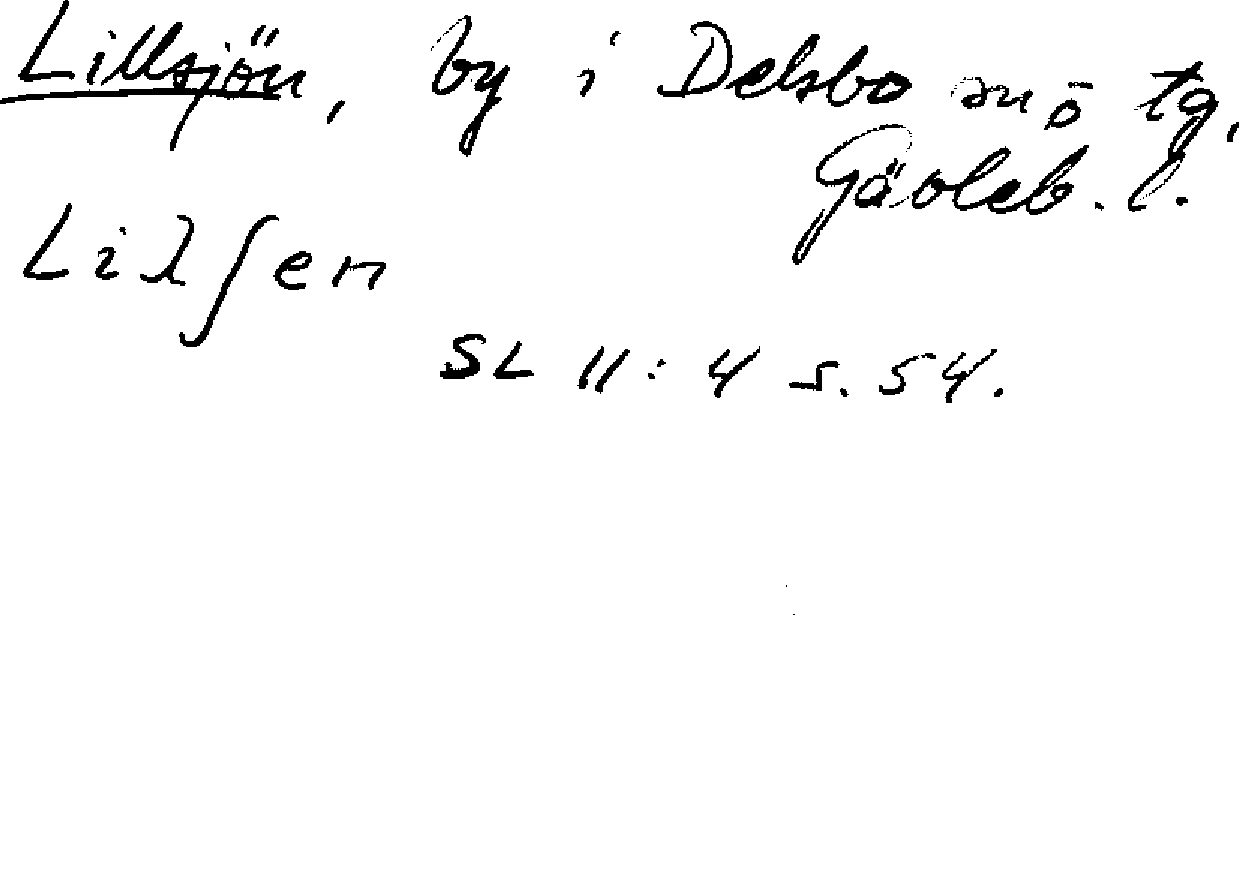 Lillsjön, by i Delsbo sn, ō tg,
Gävleb. l.
Liλʃen
SL II: 4 s. 54.